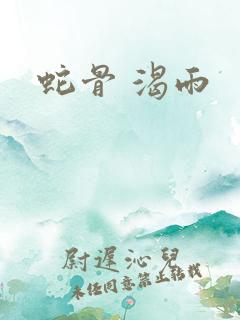 蛇骨 渴雨
尉遲沁兒
未經同意禁止轉載